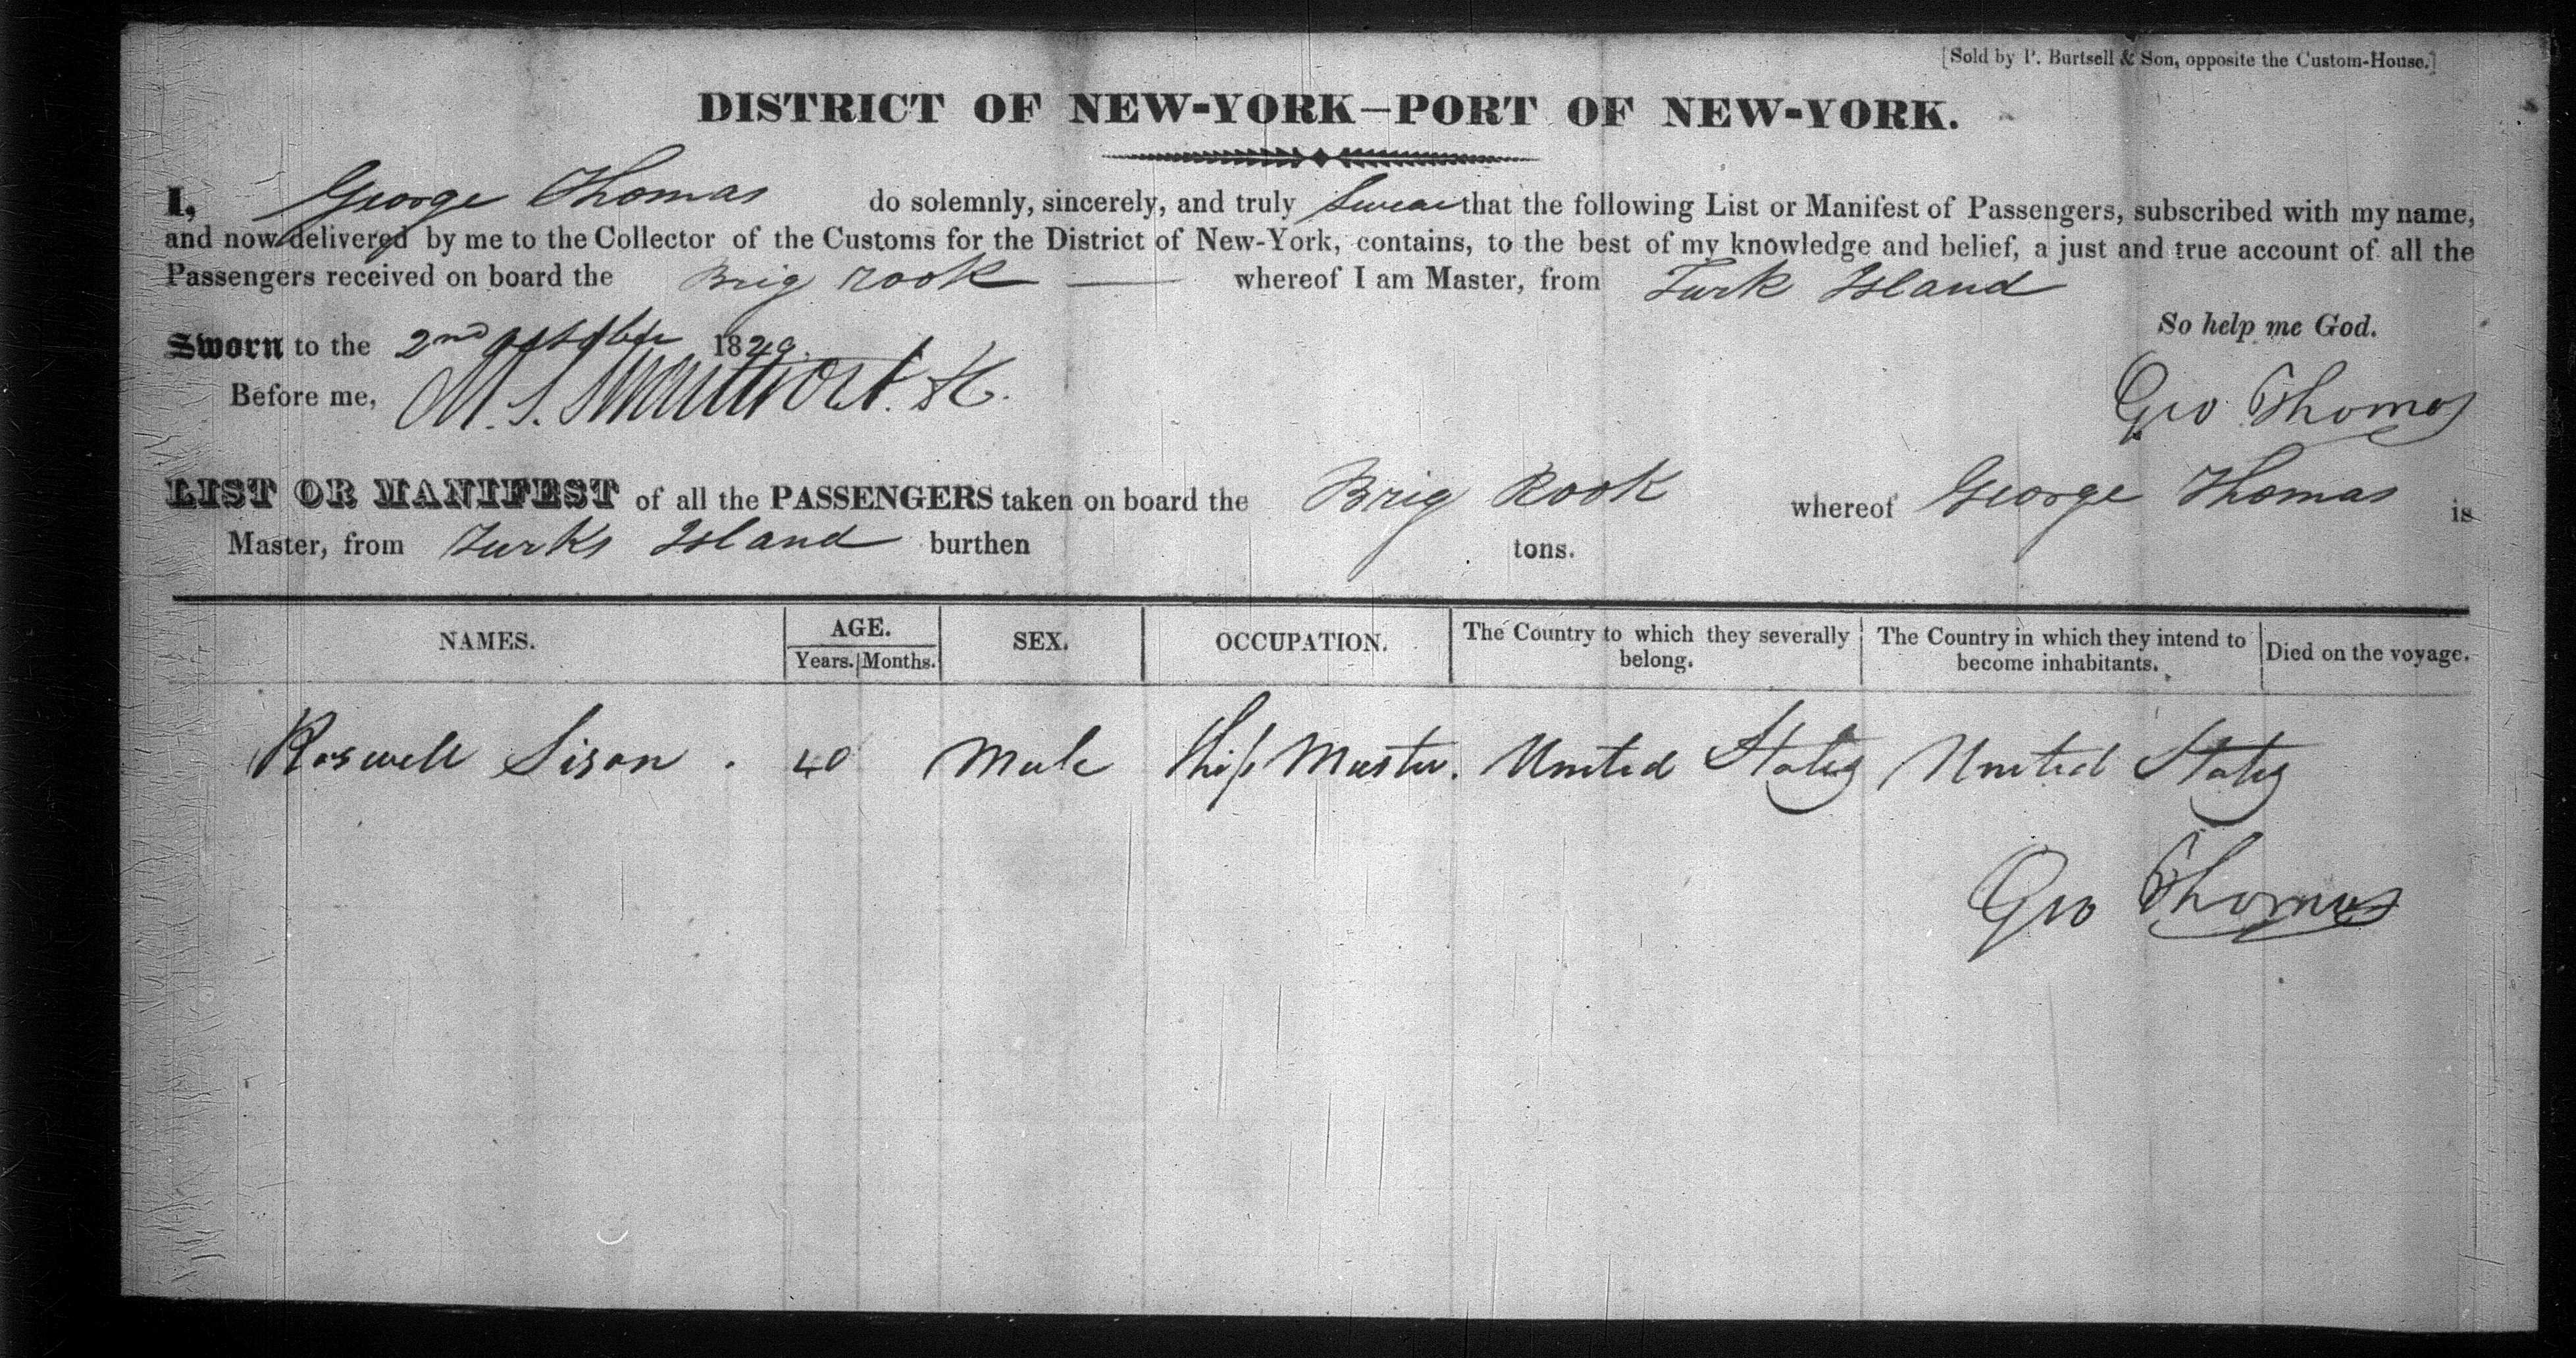 [Sold by P. Burtsell & Son, opposite the Custom-House.]
DISTRICT OF NEW-YORK—PORT OF NEW-YORK.
I, George Thomas do solemnly, sincerely, and truly Swear that the following List or Manifest of Passengers, subscribed with my name,
and now delivered by me to the Collector of the Customs for the District of New-York, contains, to the best of my knowledge and belief, a just and true account of all the
Passengers received on board the Brig rook — whereof I am Master, from Turk Island
So help me God.
Sworn to the 2nd 1829.
Before me, M. S.
Geo Thomas
LIST OR MANIFEST of all the PASSENGERS taken on board the Brig Rook whereof George Thomas is
Master, from Turks Island burthen tons.
NAMES. AGE. Years. Months. SEX. OCCUPATION. The Country to which they severally belong. The Country in which they intend to become inhabitants. Died on the voyage.
Roswell Sison . 40 Male Ship Master. United States United States
Geo Thomas